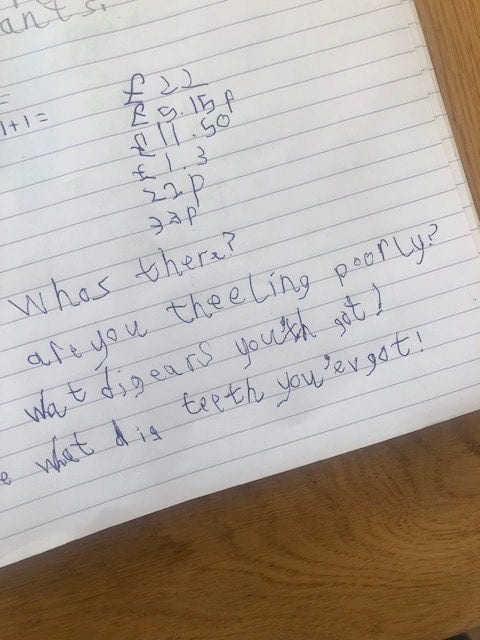 ants.
=
1+1=
£22
£5.15p
£11.50
£1.3
22p
33p
Whos there?
are you theeling poorly?
Wat digears got!
e what dig teeth you'ev got!